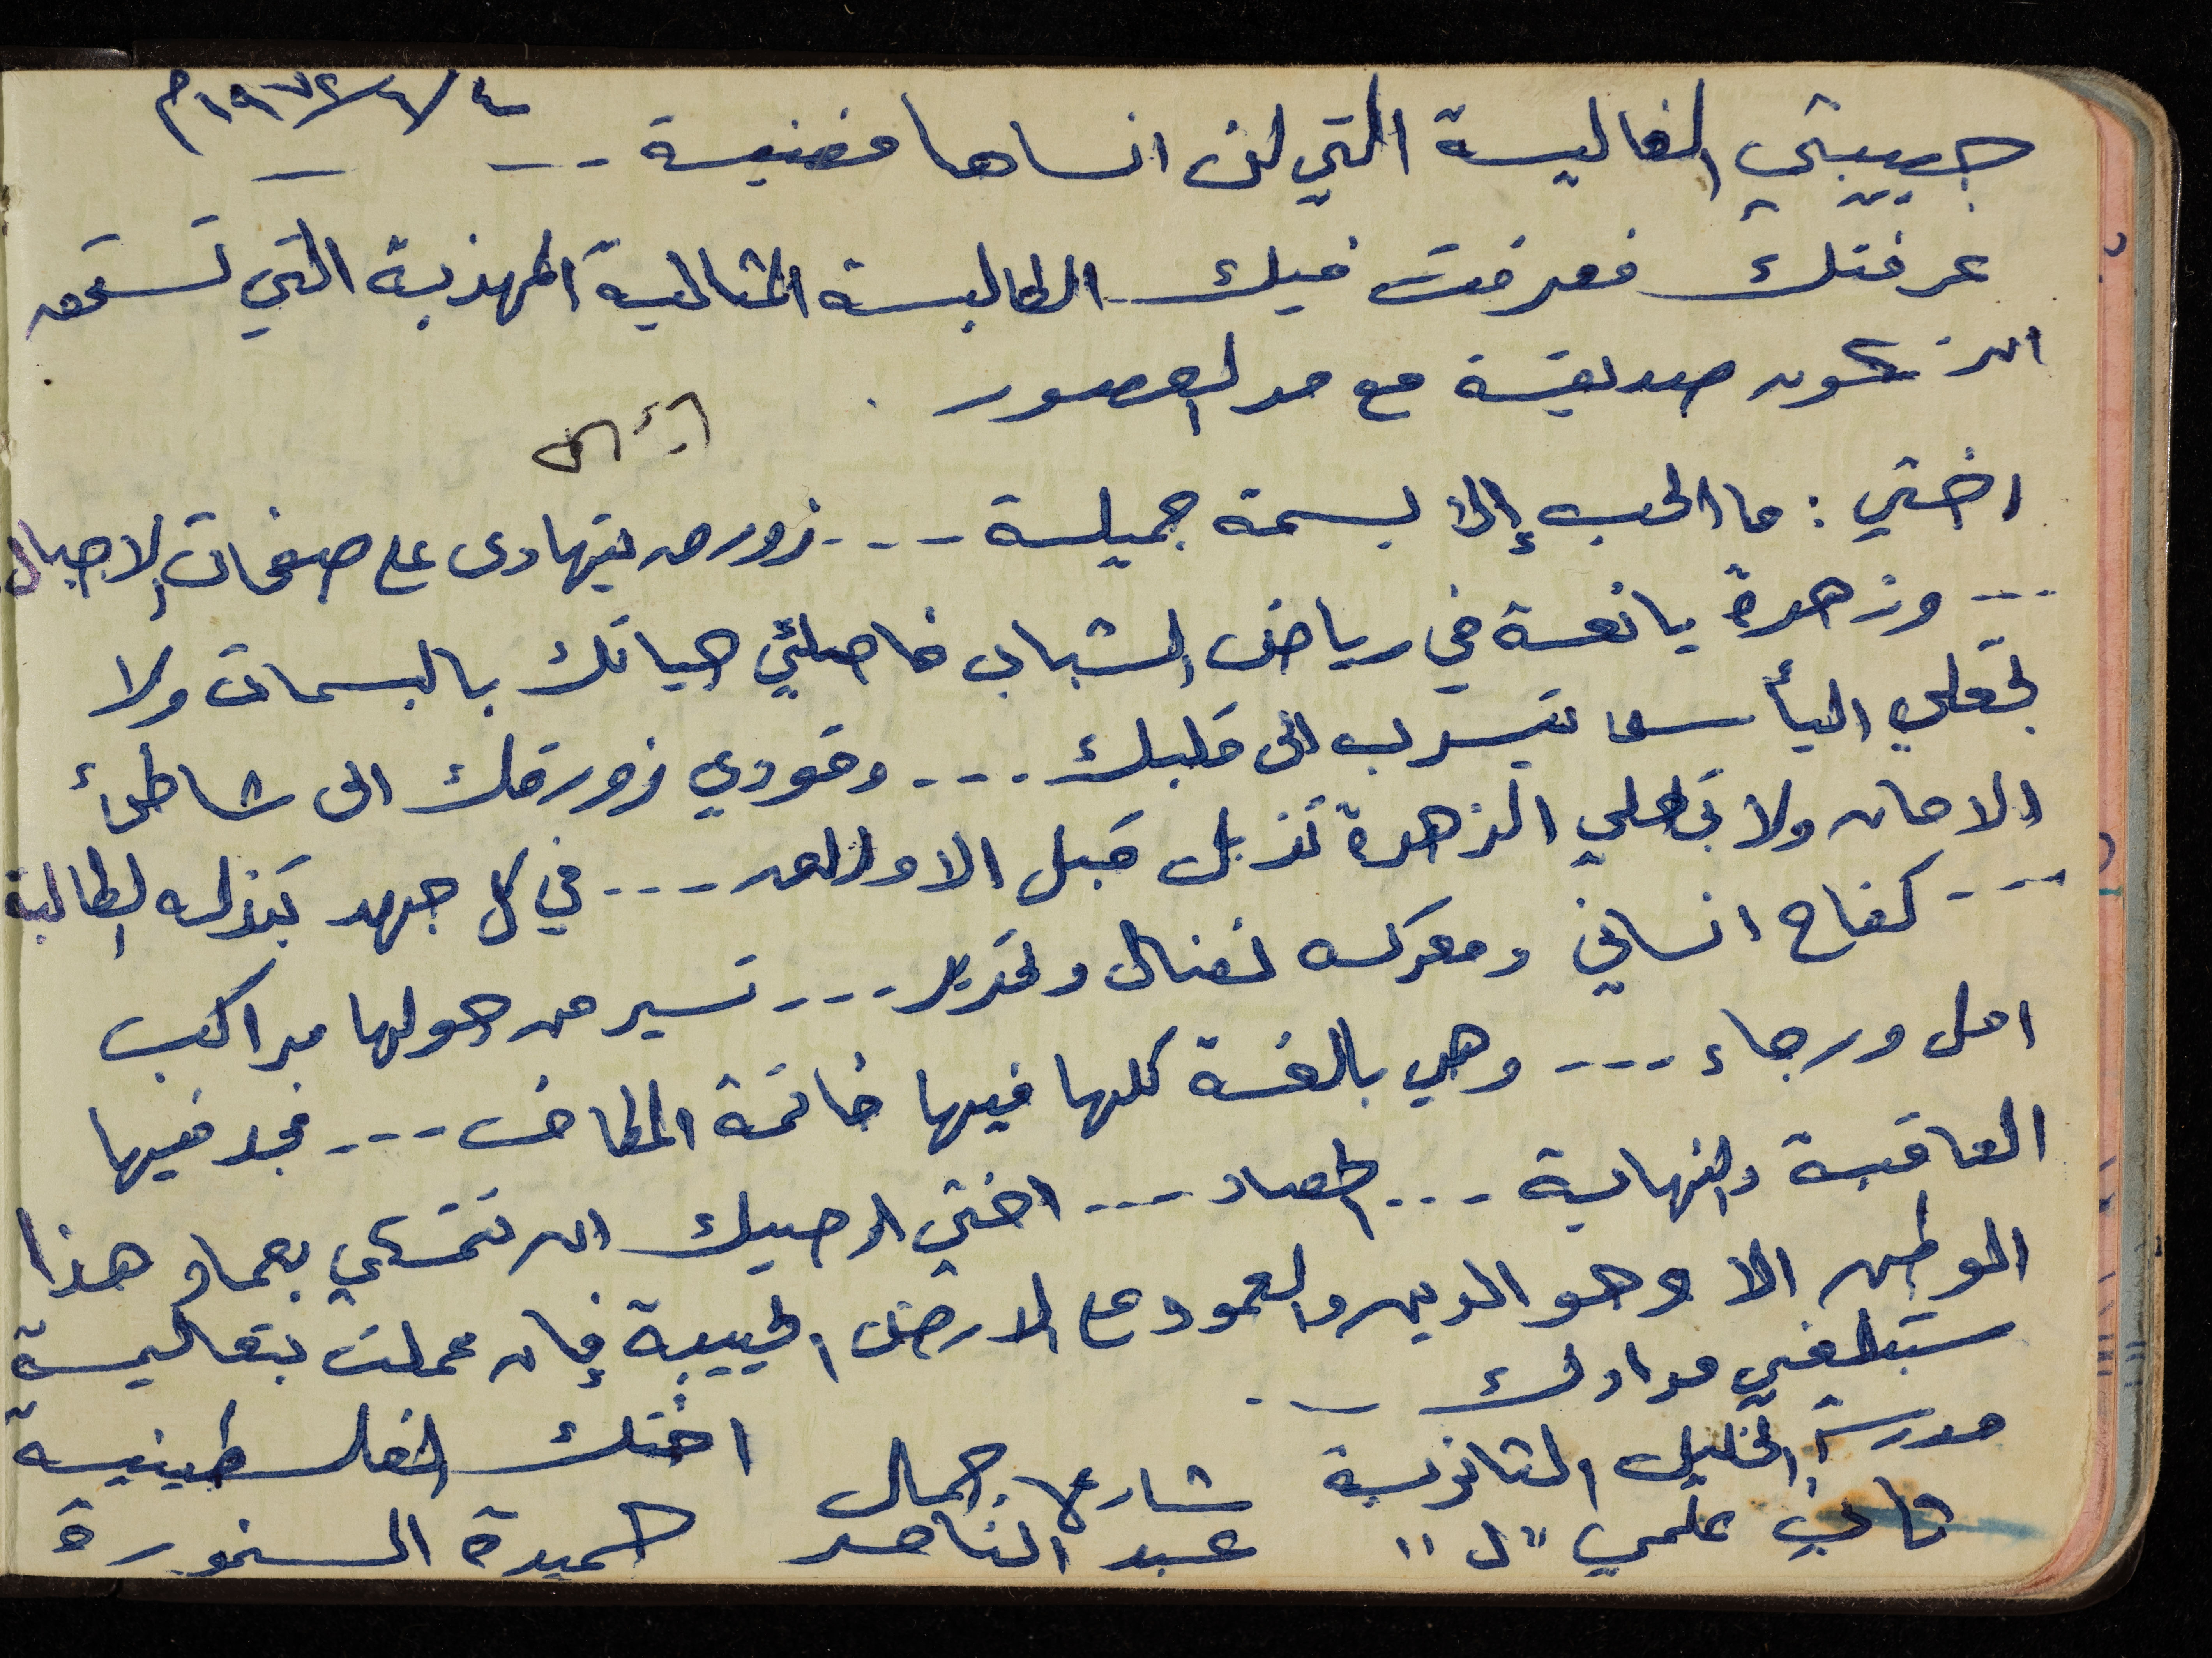 ٤/٦/١٩٧٢م
حبيبتي الغالية التي لن انساها فضية ---
عرفتك فعرفت فيك الطالبة المثالية المهذبة التي تستحق
ان تكون صديقة مع مر العصور .
اختي : ما الحب إلا بسمة جميلة --- زورق يتهادى على صفحات الاجيال
--- وزهرة يانعة في رياض الشباب فاملئي حياتك بالبسمات ولا
تجعلي اليأس يتسرب الى قلبك --- وقودي زورقك الى شاطئ
الامان ولا تجعلي الزهرة تذبل قبل الاوان --- في كل جهد تبذله الطالبة
--- كفاح انساني ومعركه نضال وتحرير --- تسير من حولها مراكب
امل ورجاء --- وهي بالغة كلها فيها خاتمة المطاف --- نجد فيها
العاقبة والنهاية --- اختي اوصيك ان تتمسكي بعماد هذا
الوطن الا وهو الدين والعمود على الارض الحبيبة فإن عملت بتعاليمة
ستبلغي مرادك .
مدرسة الخليل الثانوية شارع جمال اختك الفلسطينية
ثاني علمي "ل" عبد الناصر حميدة السنمورة